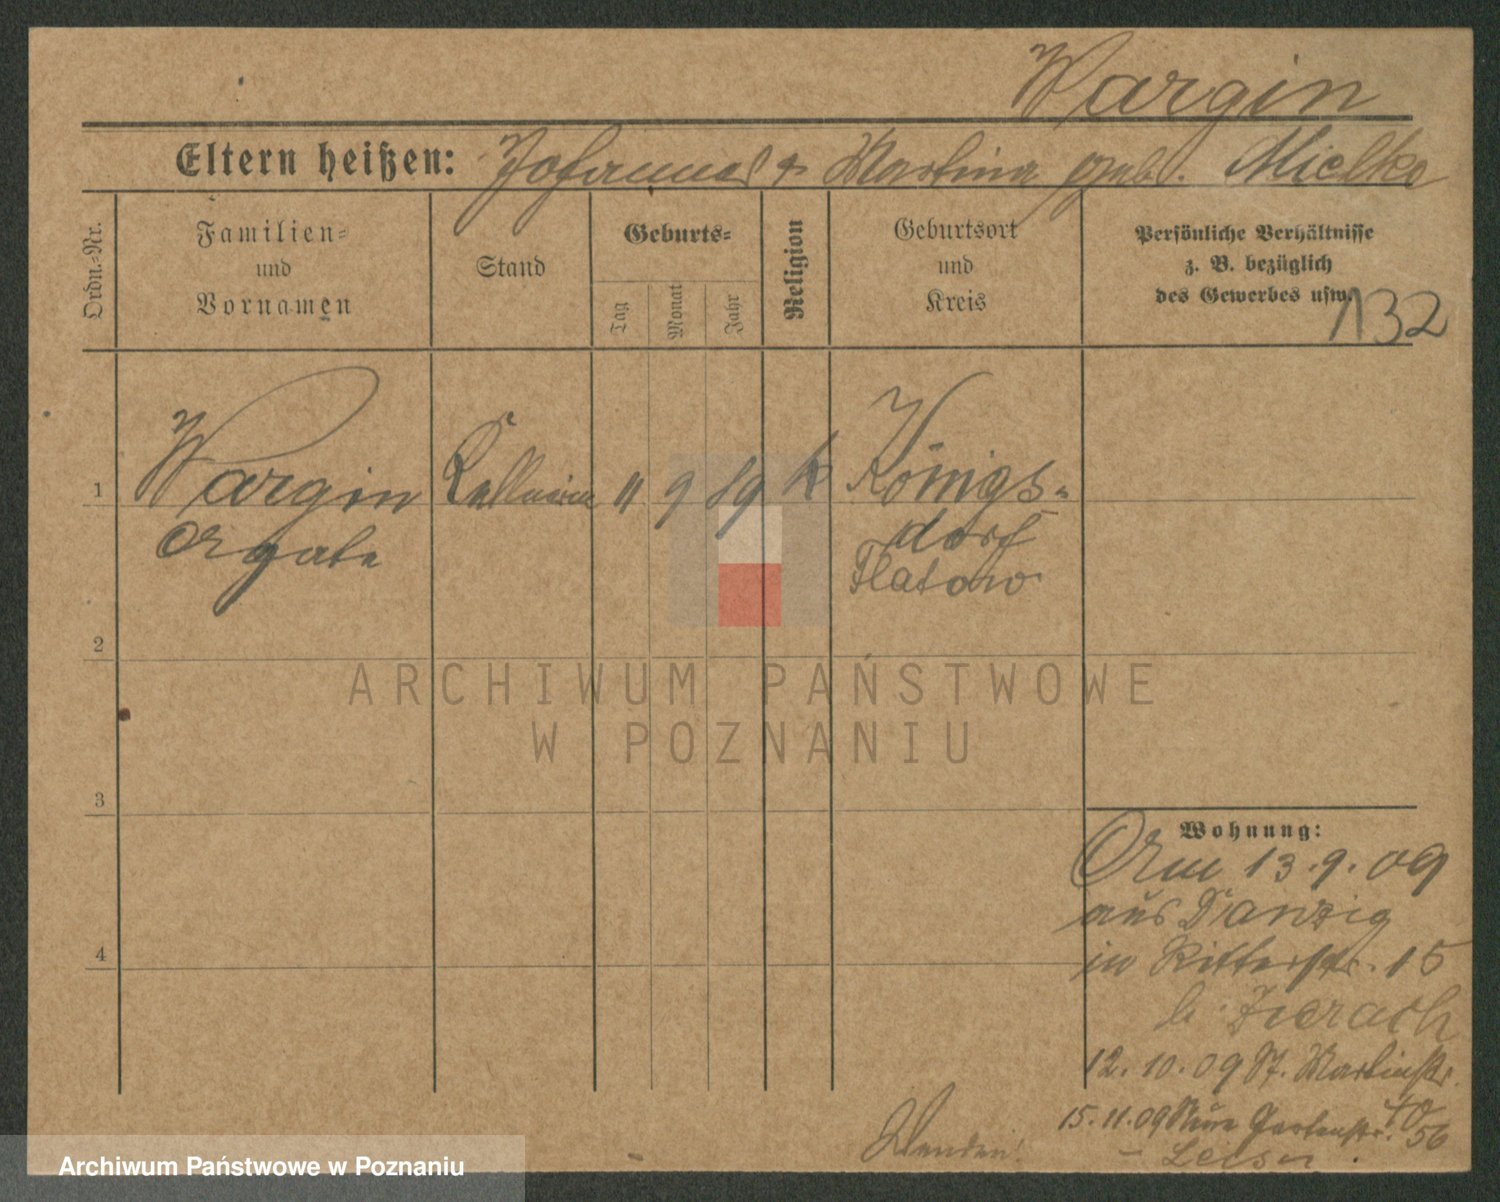 Wargin
Eltern heißen: Johannes & Martina geb. Mielke
Ordn.-Nr.
Familien-
und
Vornamen
Stand
Geburts-
Tag
Monat
Jahr
Religion
Geburtsort
und
Kreis
Persönliche Verhältnisse
z. B. bezüglich
des Gewerbes usw.
132
1
Wargin
Agate
Kellnerin
11
9
89
k
Königs-
dorf
Flatow
2
3
4
Wohnung:
Am 13.9.09
aus Danzig
in Ritterstr. 15
b.
12.10.09 St. Martinstr.
40
15.11.09 Neue Gartenstr. 56
Leiser
Wenden!
ARCHIWUM PAŃSTWOWE
W POZNANIU
Archiwum Państwowe w Poznaniu